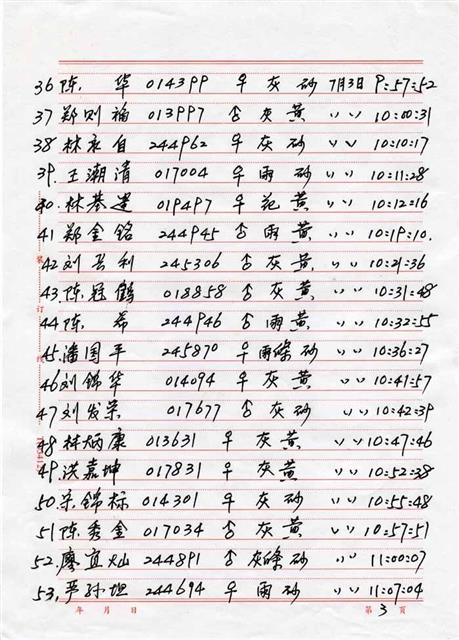 36 陈 华 014399 ♀ 灰 砂 7月3日 9:57:52
37 郑则福 013997 ♂ 灰 黄 〃 10:00:31
38 林自 244962 ♀ 灰 砂 〃 10:10:17
39. 王潮清 017004 ♀ 雨 砂 〃 10:11:28
40. 林基建 019497 ♀ 花 黄 〃 10:12:16
41 郑金铭 244945 ♂ 雨 黄 〃 10:19:10.
42 刘长利 245306 ♂ 灰 黄 〃 10:21:36
43. 陈冠鹤 018858 ♂ 灰 黄 〃 10:31:48
44 陈 希 244946 ♂ 雨 黄 〃 10:32:55
45. 潘国平 245870 ♀ 雨條 砂 〃 10:36:27
46 刘锦华 014094 ♀ 灰 黄 〃 10:41:57
47 刘发荣 017677 ♂ 灰 砂 〃 10:42:39
48 林炳康 013631 ♀ 灰 黄 〃 10:47:46
49. 洪嘉坤 017831 ♀ 灰 黄 〃 10:52:38
50. 宋锦标 014301 ♀ 灰 砂 〃 10:55:48
51 陈秀金 017034 ♂ 灰 黄 〃 10:57:51
52. 廖宜灿 244891 ♂ 灰條 砂 〃 11:00:07
53. 严孙坦 244694 ♀ 雨 砂 〃 11:07:04
年 月 日 第 3 页
装 订 线